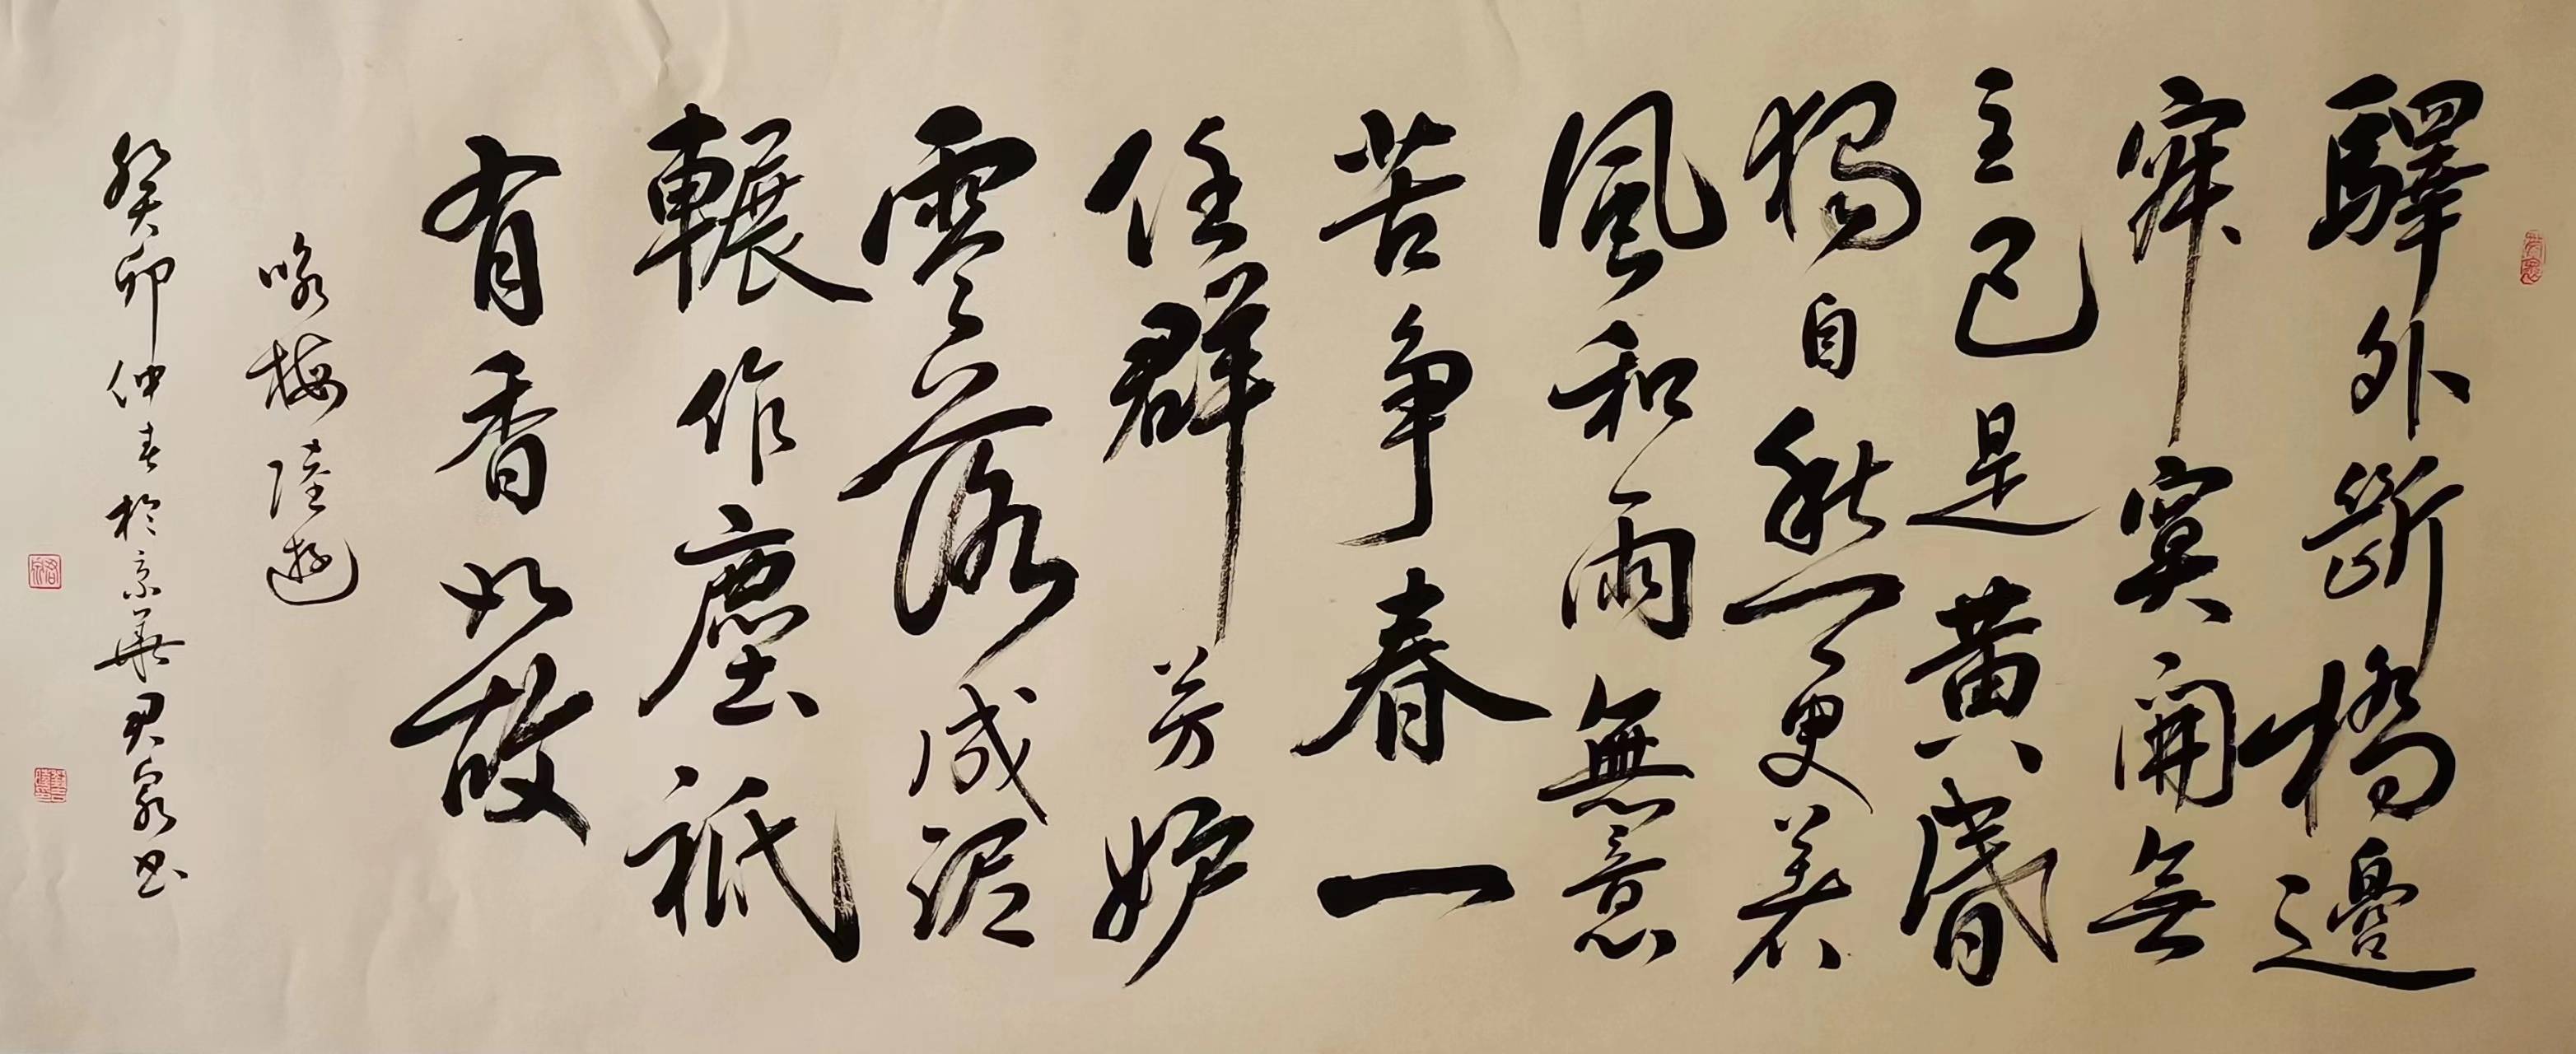 驛外斷橋邊
寂寞開無
主已是黃昏
獨自愁更著
風和雨無意
苦争春一
任群芳妒
零落成泥
輾作塵祇
有香如故
咏梅陸游
癸卯仲春於京華君泉书